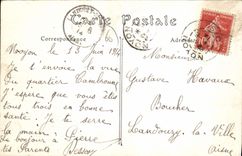 Carte Postale
Correspondance
Noyon le 13 juin 1914
Je t'envoie la vue
du quartier Cambronne
j'espère que vous êtes
tous trois en bonne
santé. Je te serre
la main. Pierre
Un bonjour à
tes Parents
Monsieur
Gustave Havaux
Boucher
Landouzy la Ville
Aisne
NOYON